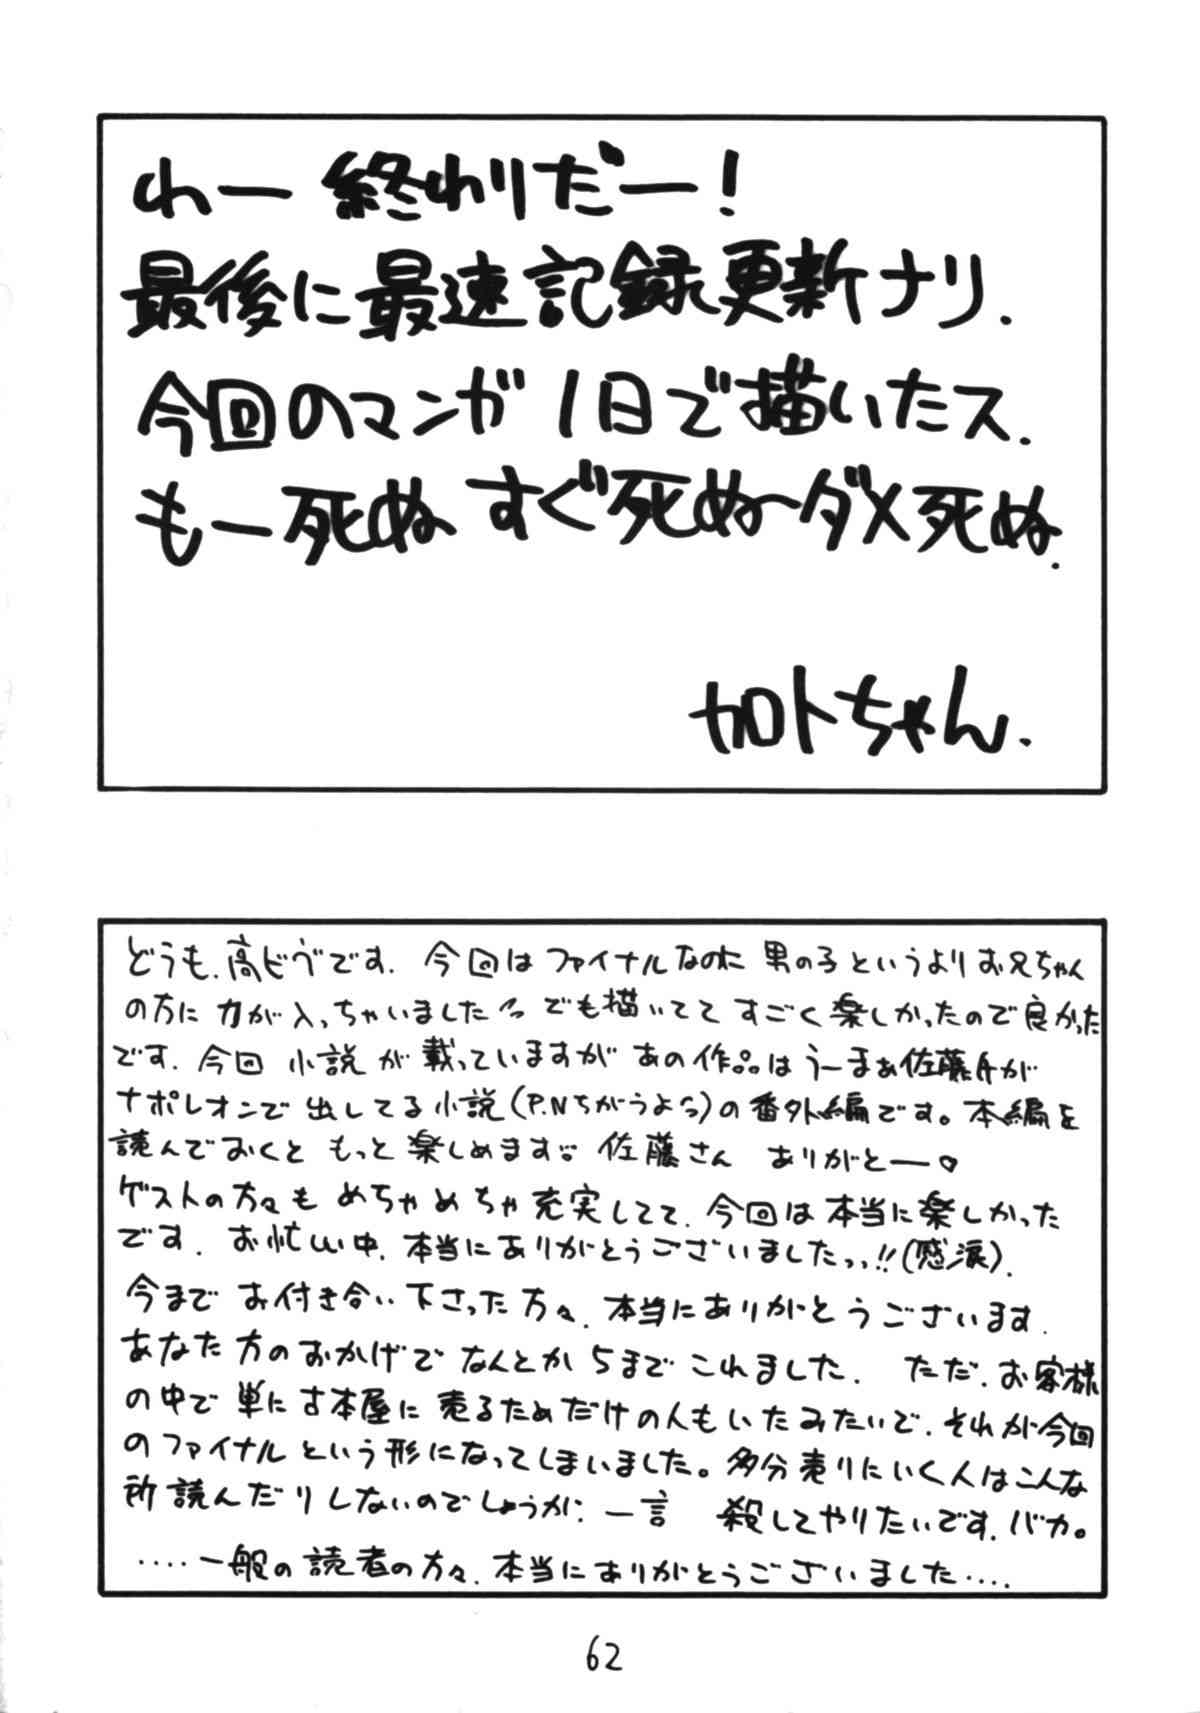 わー 終わりだー!
最後に最速記録更新ナリ.
今回のマンガ1日で描いたス.
もー死ぬ すぐ死ぬ〜ダメ死ぬ.
カロトちゃん.
どうも.高ビヴです. 今回は ファイナルなのに 男の子というよりお兄ちゃん
の方に 力が入っちゃいました でも描いてて すごく楽しかったので良かった
です. 今回 小説が載っていますが あの作品はうーまぁ佐藤氏が
ナポレオンで出してる小説(P.Nちがうよっ)の番外編です。本編を
読んでおくと もっと楽しめます。 佐藤さん ありがとー♡
ゲストの方々も めちゃめちゃ充実してて. 今回は本当に楽しかった
です. お忙しい中. 本当にありがとうございましたっっ!!(感涙).
今まで お付き合い下さった方々. 本当にありがとうございます.
あなた方のおかげで なんとか5までこれました. ただ.お客様
の中で 単に古本屋に 売るためだけの人もいたみたいで.それが今回
のファイナルという形になってしまいました。多分売りにいく人はこんな
所読んだりしないのでしょうが. 一言 殺してやりたいです.バカ。
....一般の読者の方々.本当にありがとうございました....
62